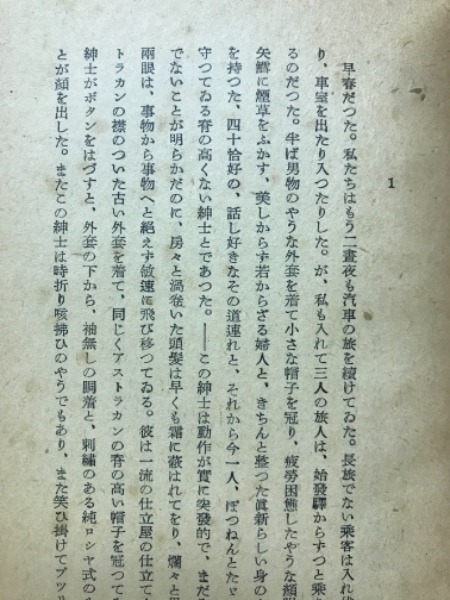 1
早春だつた。私たちはもう二晝夜も汽車の旅を續けてゐた。長旅でない乘客は入れ
り、車室を出たり入つたりした。が、私も入れて三人の旅人は、始發驛からずつと乘
るのだつた。半ば男物のやうな外套を着て小さな帽子を冠り、疲勞困憊したやうな顏
矢鱈に煙草をふかす、美しからず若からざる婦人と、きちんと整つた眞新らしい身の
を持つた、四十恰好の、話し好きなその道連れと、それから今一人、ぽつねんとたゞ
守つてゐる脊の高くない紳士とであつた。――この紳士は動作が實に突發的で、まだ
でないことが明らかだのに、房々と渦卷いた頭髮は早くも霜に蔽はれてをり、爛々と
兩眼は、事物から事物へと絕えず敏速に飛び移つてゐる。彼は一流の仕立屋の仕立て
トラカンの襟のついた古い外套を着て、同じくアストラカンの脊の高い帽子を冠つて
紳士がボタンをはづすと、外套の下から、袖無しの胴着と、刺繡のある純ロシヤ式の
とが顏を出した。またこの紳士は時折り咳拂ひのやうでもあり、また笑ひ掛けてプツリ